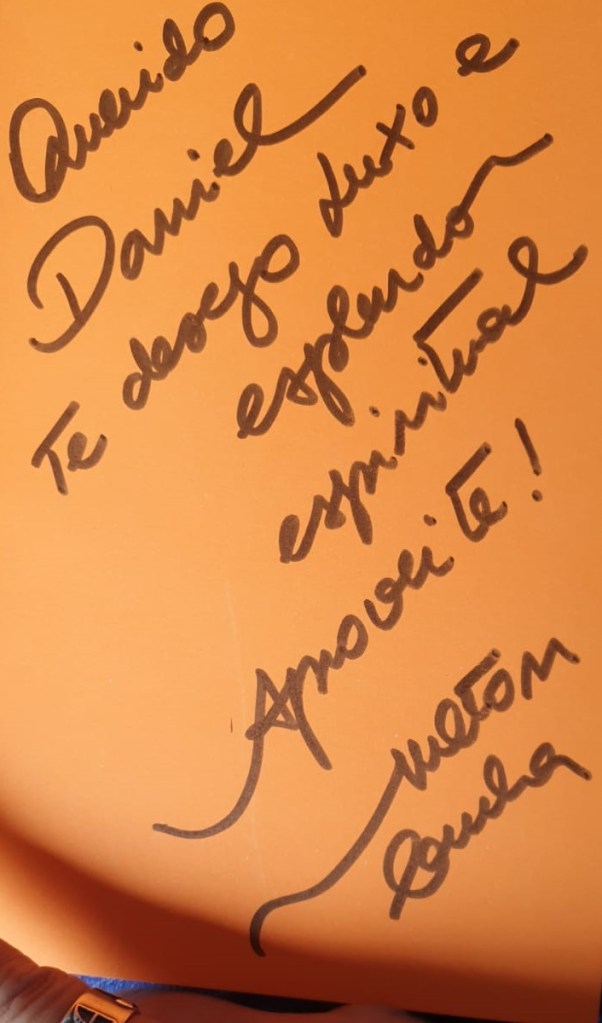 Querido
Daniel
Te desejo luxo e
esplendor
espiritual
Aproveite!
Milton
Cunha